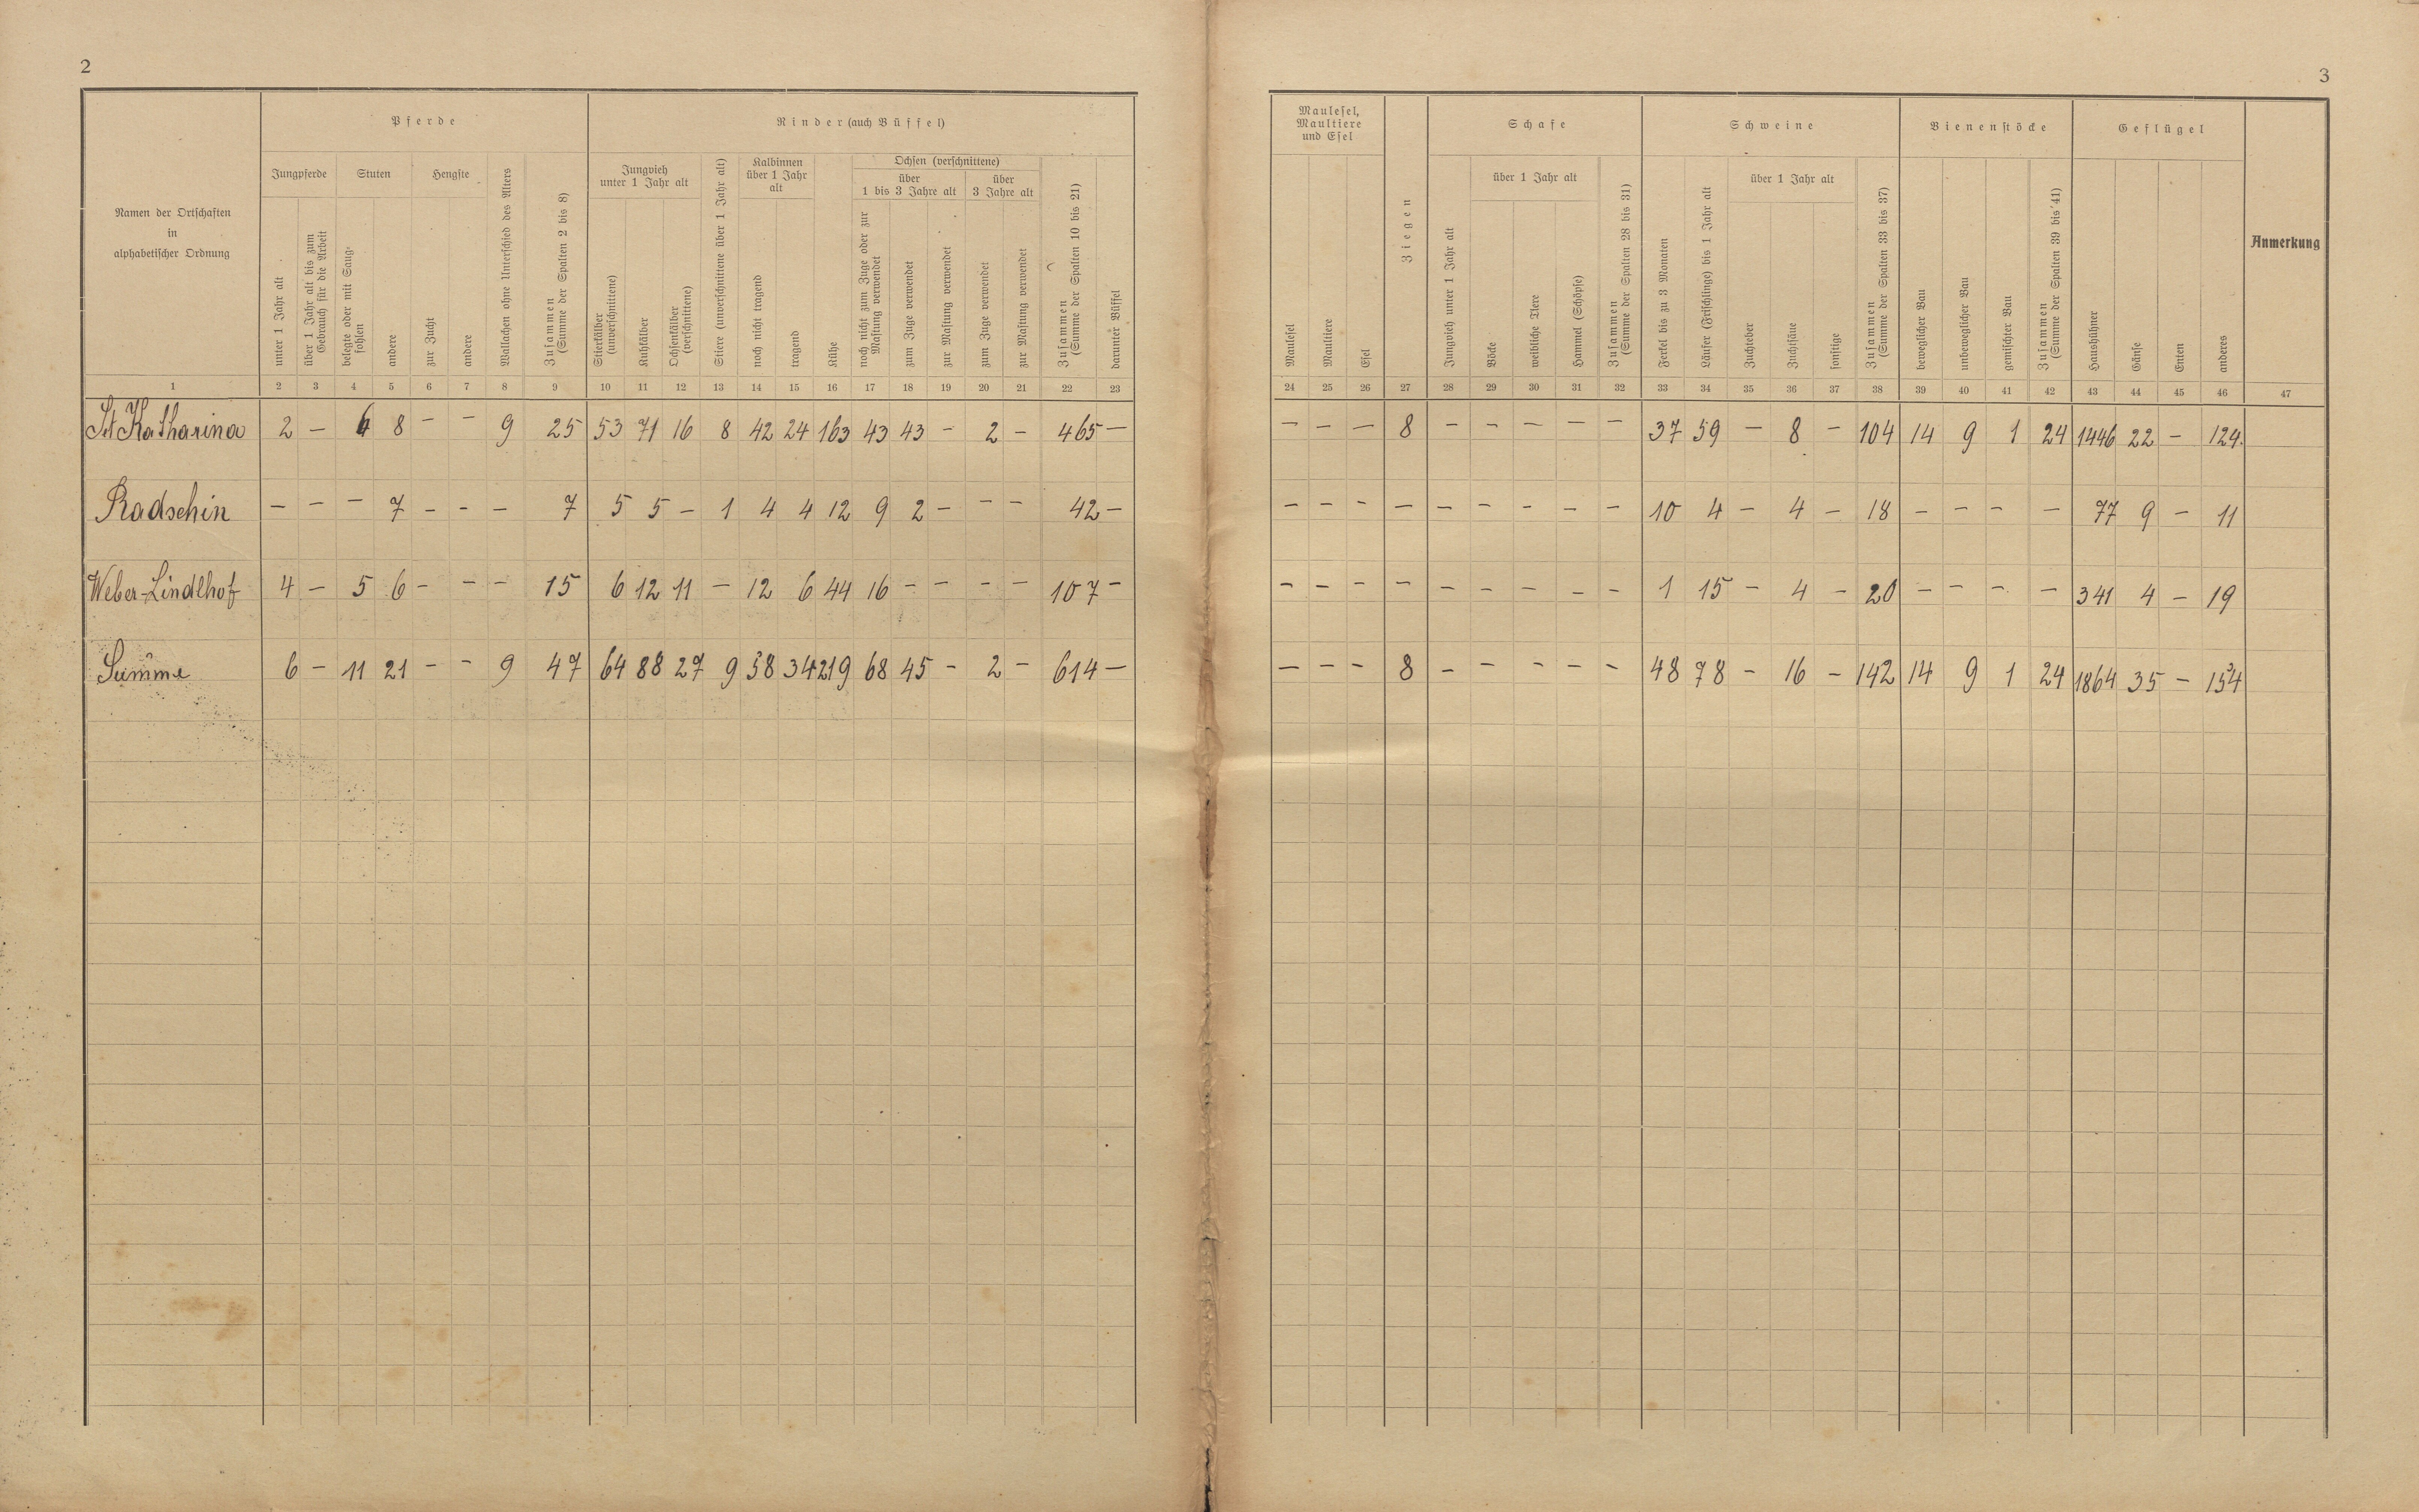 2
Namen der Ortschaften
in
alphabetischer Ordnung
Pferde
Jungpferde
Stuten
Hengste
unter 1 Jahr alt
über 1 Jahr alt bis zum
Gebrauch für die Arbeit
belegte oder mit Saug-
fohlen
andere
zur Zucht
andere
Wallachen ohne Unterschied des Alters
Zusammen
(Summe der Spalten 2 bis 8)
Rinder (auch Büffel)
Jungvieh
unter 1 Jahr alt
Stierkälber
(unverschnittene)
Kuhkälber
Ochsenkälber
(verschnittene)
Stiere (unverschnittene über 1 Jahr alt)
Kalbinnen
über 1 Jahr
alt
noch nicht tragend
tragend
Kühe
Ochsen (verschnittene)
über
1 bis 3 Jahre alt
über
3 Jahre alt
noch nicht zum Zuge oder zur
Mastung verwendet
zum Zuge verwendet
zur Mastung verwendet
zum Zuge verwendet
zur Mastung verwendet
Zusammen
(Summe der Spalten 10 bis 21)
darunter Büffel
1 2 3 4 5 6 7 8 9 10 11 12 13 14 15 16 17 18 19 20 21 22 23
St Katharina 2 – 6 8 – – 9 25 53 71 16 8 42 24 163 43 43 – 2 – 465 –
Radschin – – – 7 – – – 7 5 5 – 1 4 4 12 9 2 – – – 42 –
Weber-Lindlhof 4 – 5 6 – – – 15 6 12 11 – 12 6 44 16 – – – – 107 –
Summe 6 – 11 21 – – 9 47 64 88 27 9 58 34 219 68 45 – 2 – 614 –
3
Maulesel,
Maultiere
und Esel
Maulesel
Maultiere
Esel
Ziegen
Schafe
Jungvieh unter 1 Jahr alt
über 1 Jahr alt
Böcke
weibliche Tiere
Hammel (Schöpse)
Zusammen
(Summe der Spalten 28 bis 31)
Schweine
Ferkel bis zu 3 Monaten
Läufer (Frischlinge) bis 1 Jahr alt
über 1 Jahr alt
Zuchteber
Zuchtsäue
sonstige
Zusammen
(Summe der Spalten 33 bis 37)
Bienenstöcke
beweglicher Bau
unbeweglicher Bau
gemischter Bau
Zusammen
(Summe der Spalten 39 bis 41)
Geflügel
Haushühner
Gänse
Enten
anderes
Anmerkung
24 25 26 27 28 29 30 31 32 33 34 35 36 37 38 39 40 41 42 43 44 45 46 47
– – – 8 – – – – – 37 59 – 8 – 104 14 9 1 24 1446 22 – 124.
– – – – – – – – – 10 4 – 4 – 18 – – – – 77 9 – 11
– – – – – – – – – 1 15 – 4 – 20 – – – – 341 4 – 19
– – – 8 – – – – – 48 78 – 16 – 142 14 9 1 24 1864 35 – 154